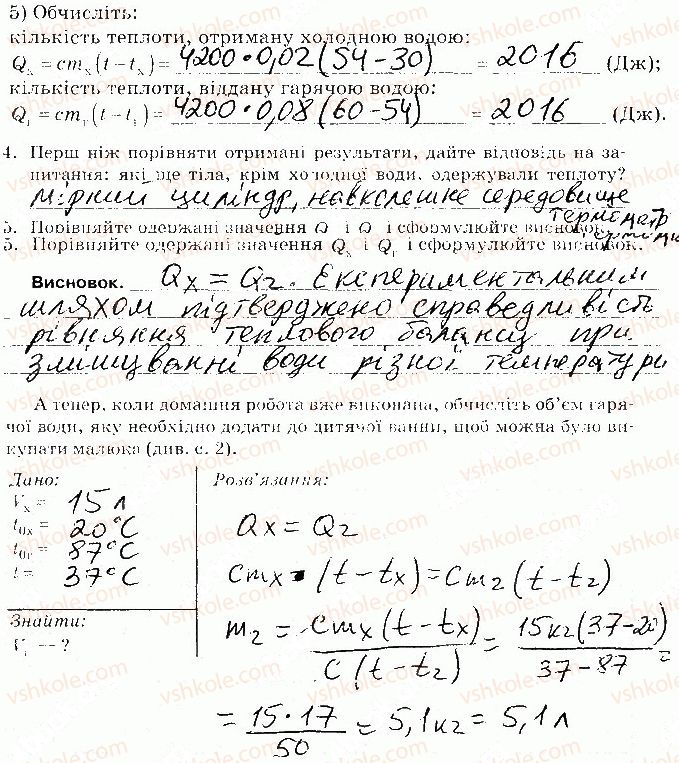 5) Обчисліть:
кількість теплоти, отриману холодною водою:
Qх = cmх(t − tх) = 4200 • 0,02 (54 − 30) = 2016 (Дж);
кількість теплоти, віддану гарячою водою:
Qг = cmг(t − tг) = 4200 • 0,08 (60 − 54) = 2016 (Дж).
4. Перш ніж порівняти отримані результати, дайте відповідь на за-
питання: які ще тіла, крім холодної води, одержували теплоту?
Мірний циліндр, навколешнє середовище
термометр
5. Порівняйте одержані значення Q і Q і сформулюйте висновок.
5. Порівняйте одержані значення Qх і Qг і сформулюйте висновок.
Висновок. Qх = Qг. Експериментальним
шляхом підтверджено справедливість
рівняння теплового балансу при
змішуванні води різної температури
А тепер, коли домашня робота вже виконана, обчисліть об'єм гаря-
чої води, яку необхідно додати до дитячої ванни, щоб можна було ви-
купати малюка (див. с. 2).
Дано:
Vх = 15 л
t0х = 20°C
t0г = 87°C
t = 37°C
Знайти:
Vг − ?
Розв'язання:
Qх = Qг
Cmх • (t − tх) = Cmг (t − tг)
mг = Cmх (t − tх) / C (t − tг) = 15кг (37−20) / 37 − 87 =
= 15 • 17 / 50 = 5,1 кг = 5,1 л